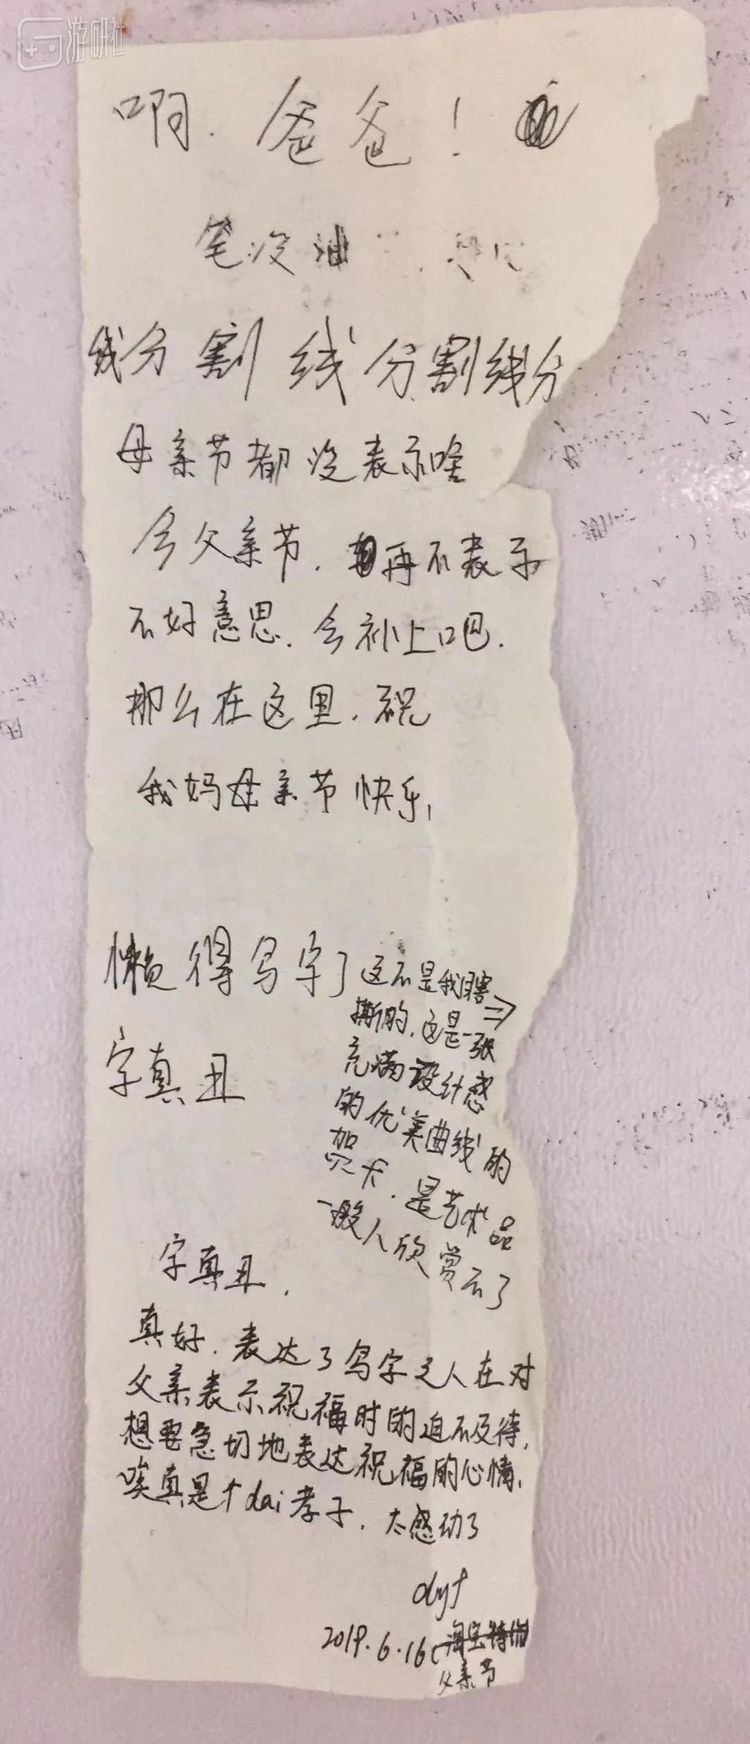 游研社
啊.爸爸!
笔没油
线分割线分割线分
母亲节都没表示啥
今父亲节.再不表示
不好意思.今补上吧.
那么在这里.祝
我妈母亲节快乐,
懒得写字了
字真丑
这不是我瞎
撕的.这是一张
充满设计感
的优美曲线的
贺卡.是艺术品
一般人欣赏不了
字真丑.
真好.表达了写字之人在对
父亲表示祝福时的迫不及待,
想要急切地表达祝福的心情.
唉真是个dai孝子.太感动了
dyf
2019.6.16(
父亲节